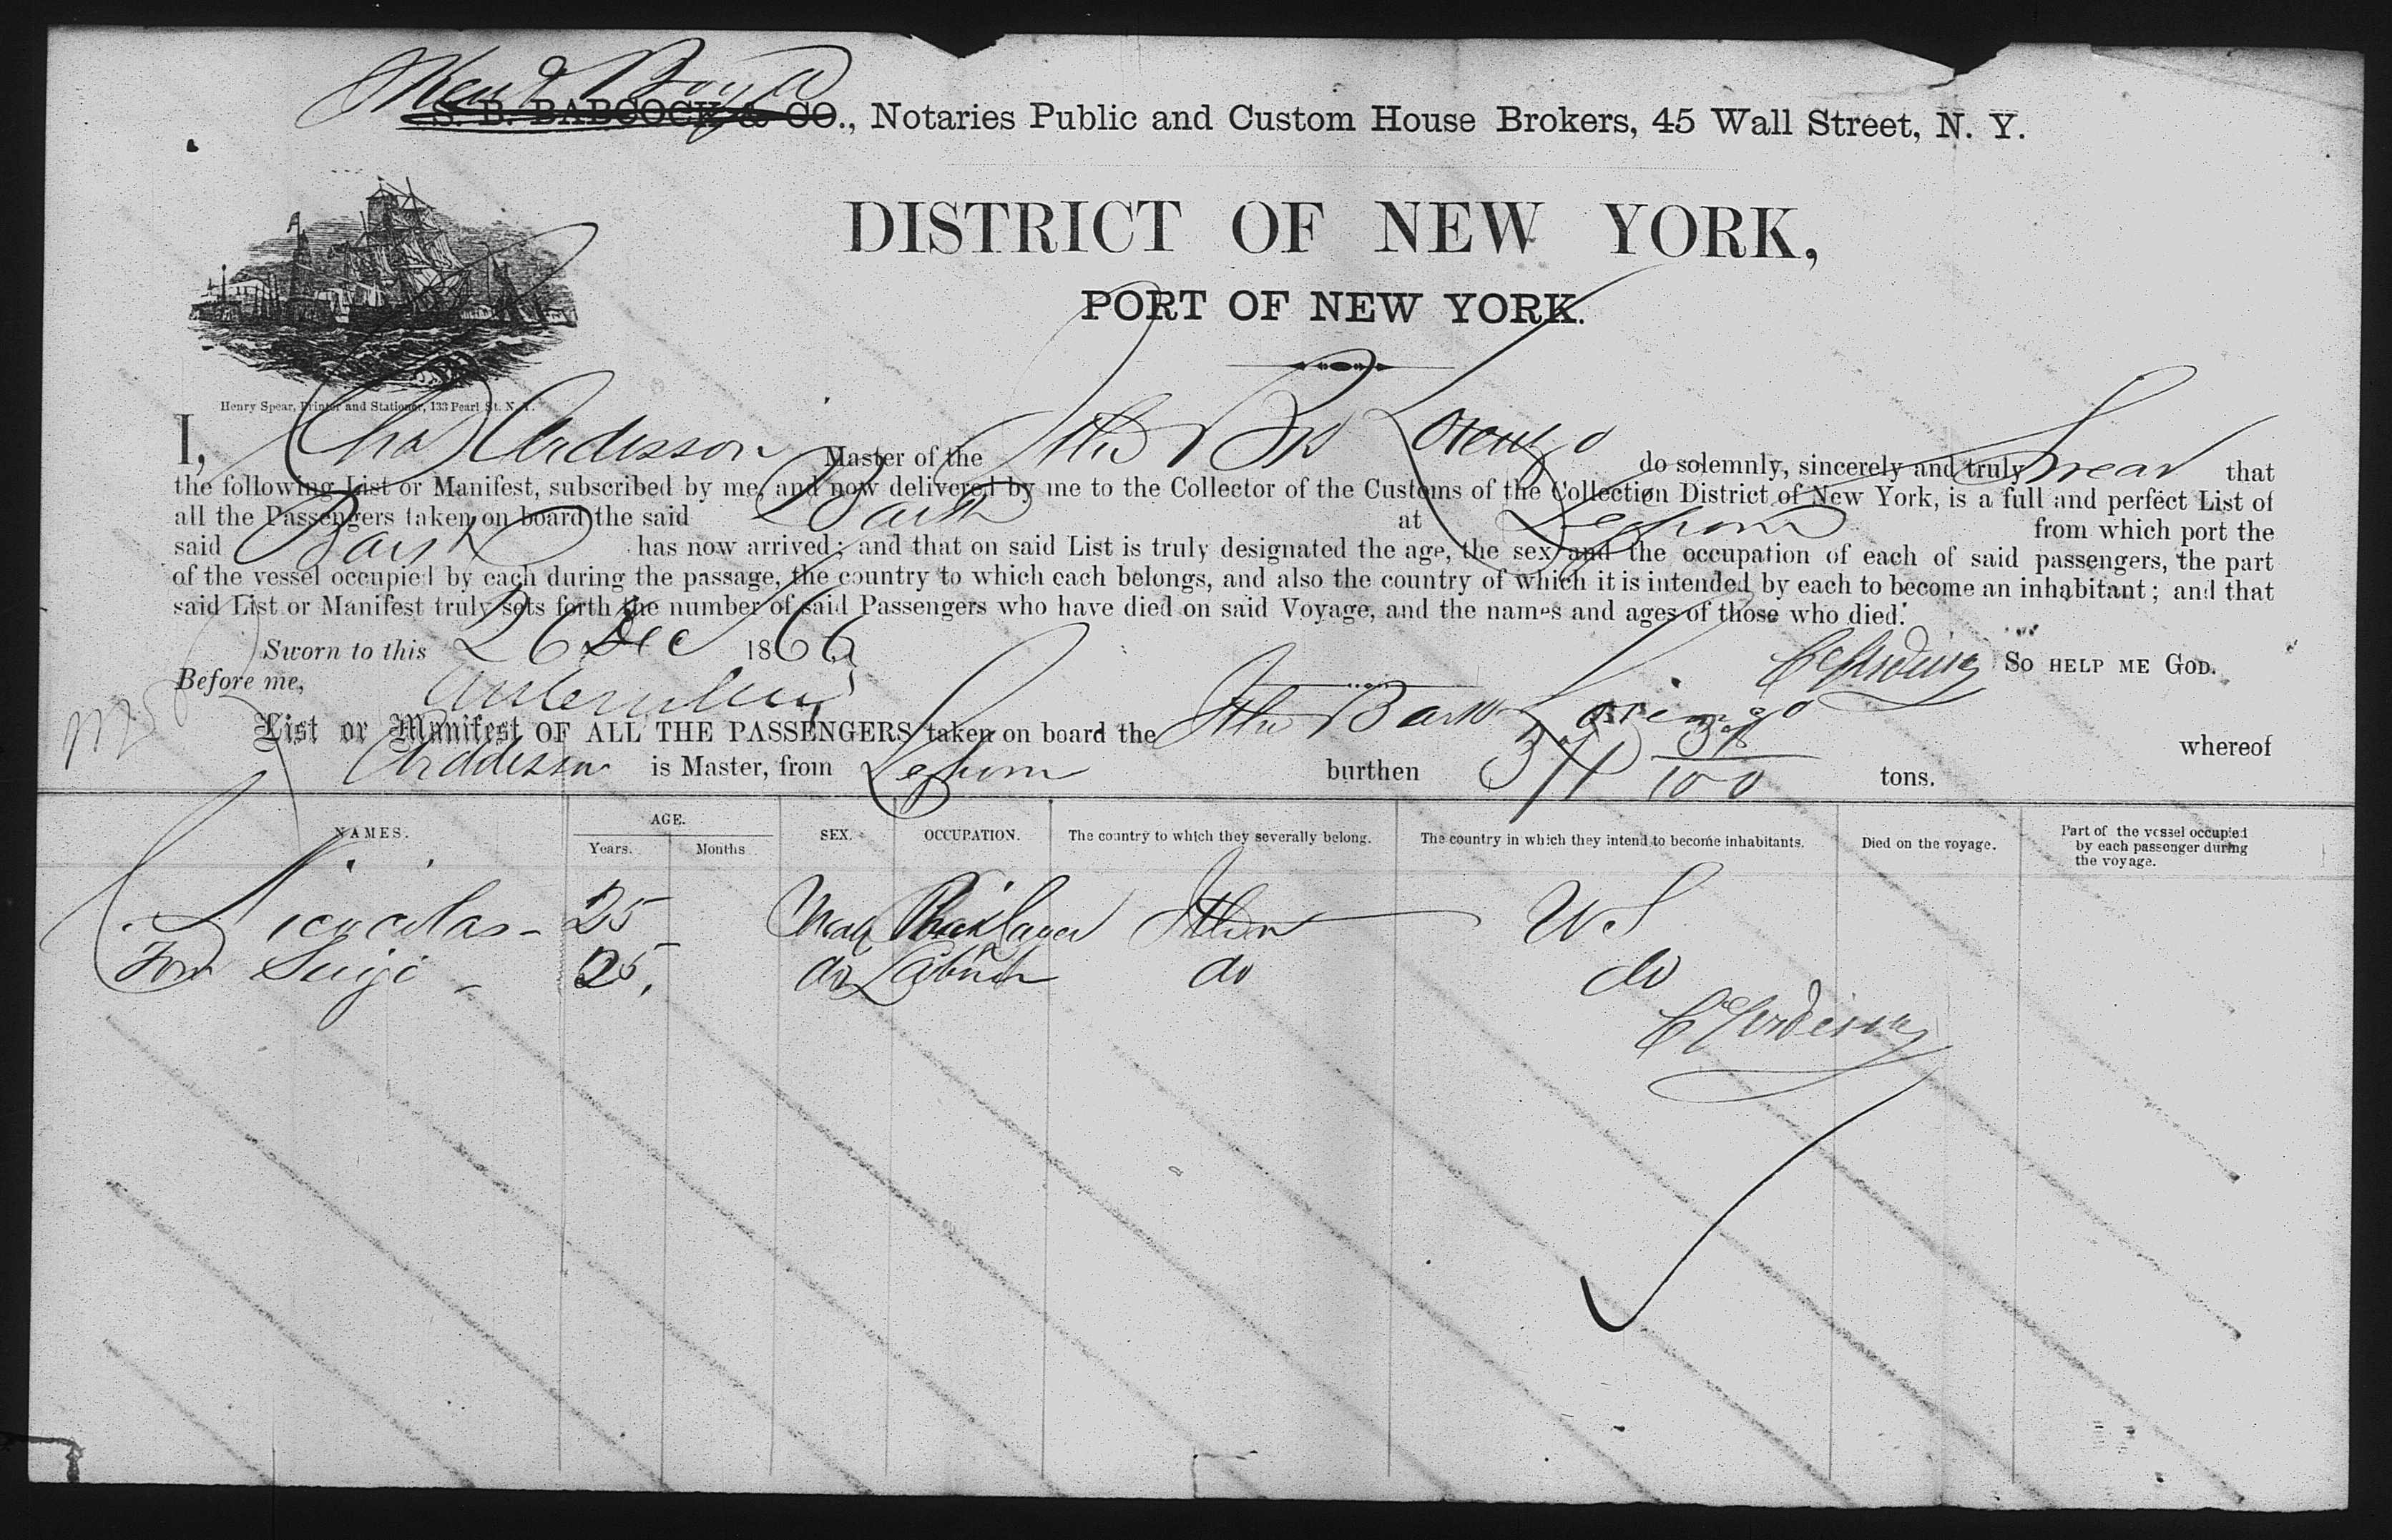 Boyd
S. B. BABCOCK & CO., Notaries Public and Custom House Brokers, 45 Wall Street, N. Y.
DISTRICT OF NEW YORK,
PORT OF NEW YORK.
Henry Spear, Printer and Stationer, 133 Pearl St. N. Y.
I, Chas Master of the Lorenzo do solemnly, sincerely and truly Swear that
the following List or Manifest, subscribed by me, and now delivered by me to the Collector of the Customs of the Collection District of New York, is a full and perfect List of
all the Passengers taken on board the said Bark at Leghorn from which port the
said Bark has now arrived; and that on said List is truly designated the age, the sex and the occupation of each of said passengers, the part
of the vessel occupied by each during the passage, the country to which each belongs, and also the country of which it is intended by each to become an inhabitant; and that
said List or Manifest truly sets forth the number of said Passengers who have died on said Voyage, and the names and ages of those who died.
Sworn to this 26 Dec 1866
So HELP ME GOD.
Before me,
List or Manifest OF ALL THE PASSENGERS taken on board the Bark whereof
is Master, from Leghorn burthen tons.
NAMES. AGE. SEX. OCCUPATION. The country to which they severally belong. The country in which they intend to become inhabitants. Died on the voyage. Part of the vessel occupied by each passenger during the voyage.
Years. Months
25 Male Bricklayer US
25, do do do